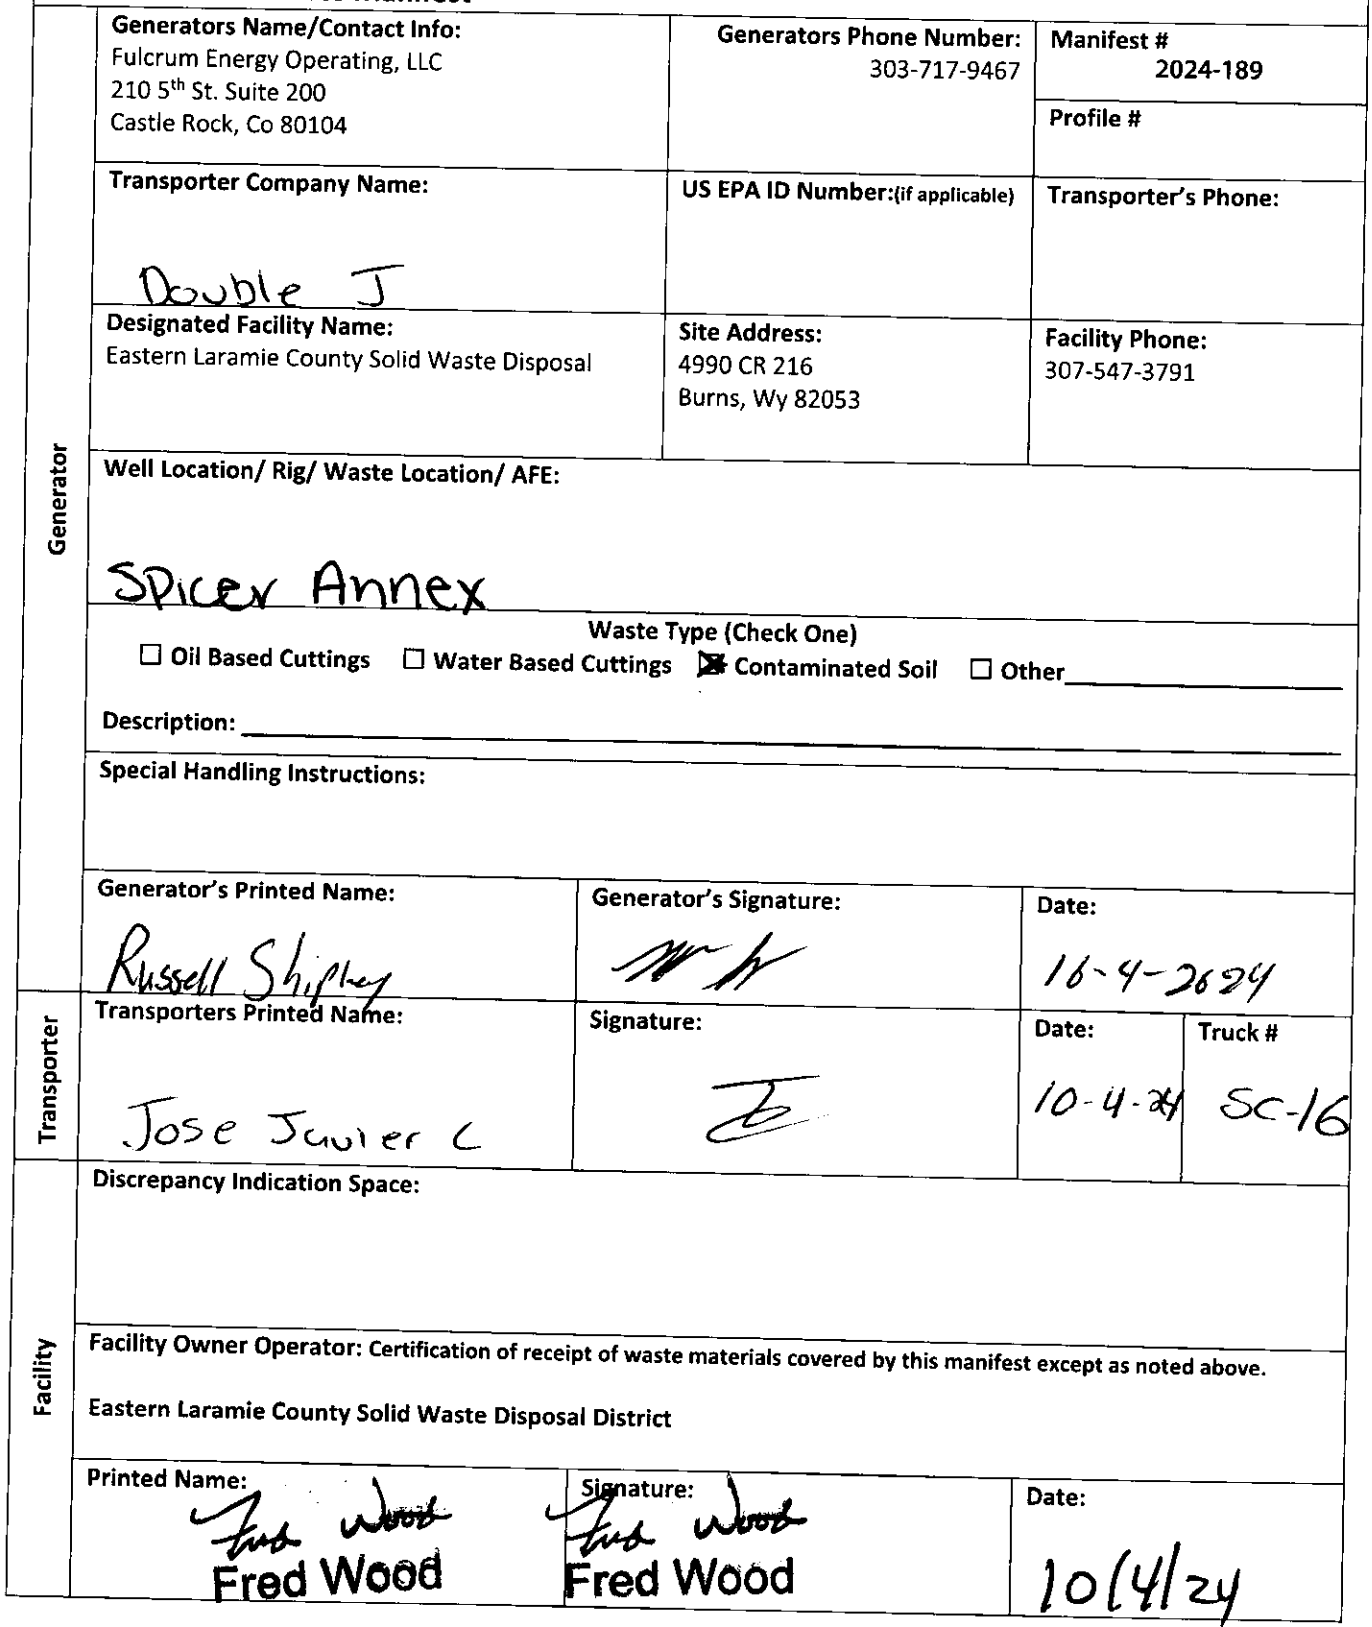 Generators Name/Contact Info:
Fulcrum Energy Operating, LLC
210 5th St. Suite 200
Castle Rock, Co 80104
Generators Phone Number:
303-717-9467
Manifest #
2024-189
Profile #
Transporter Company Name:
Double J
US EPA ID Number:(if applicable)
Transporter's Phone:
Designated Facility Name:
Eastern Laramie County Solid Waste Disposal
Site Address:
4990 CR 216
Burns, Wy 82053
Facility Phone:
307-547-3791
Generator
Well Location/ Rig/ Waste Location/ AFE:
Spicer Annex
Waste Type (Check One)
☐ Oil Based Cuttings ☐ Water Based Cuttings ☒ Contaminated Soil ☐ Other
Description:
Special Handling Instructions:
Generator's Printed Name:
Russell Shipley
Generator's Signature:
Date:
10-4-2024
Transporter
Transporters Printed Name:
Jose Javier C
Signature:
Date:
10-4-24
Truck #
SC-16
Facility
Discrepancy Indication Space:
Facility Owner Operator: Certification of receipt of waste materials covered by this manifest except as noted above.
Eastern Laramie County Solid Waste Disposal District
Printed Name:
Fred Wood
Fred Wood
Signature:
Fred Wood
Fred Wood
Date:
10/4/24